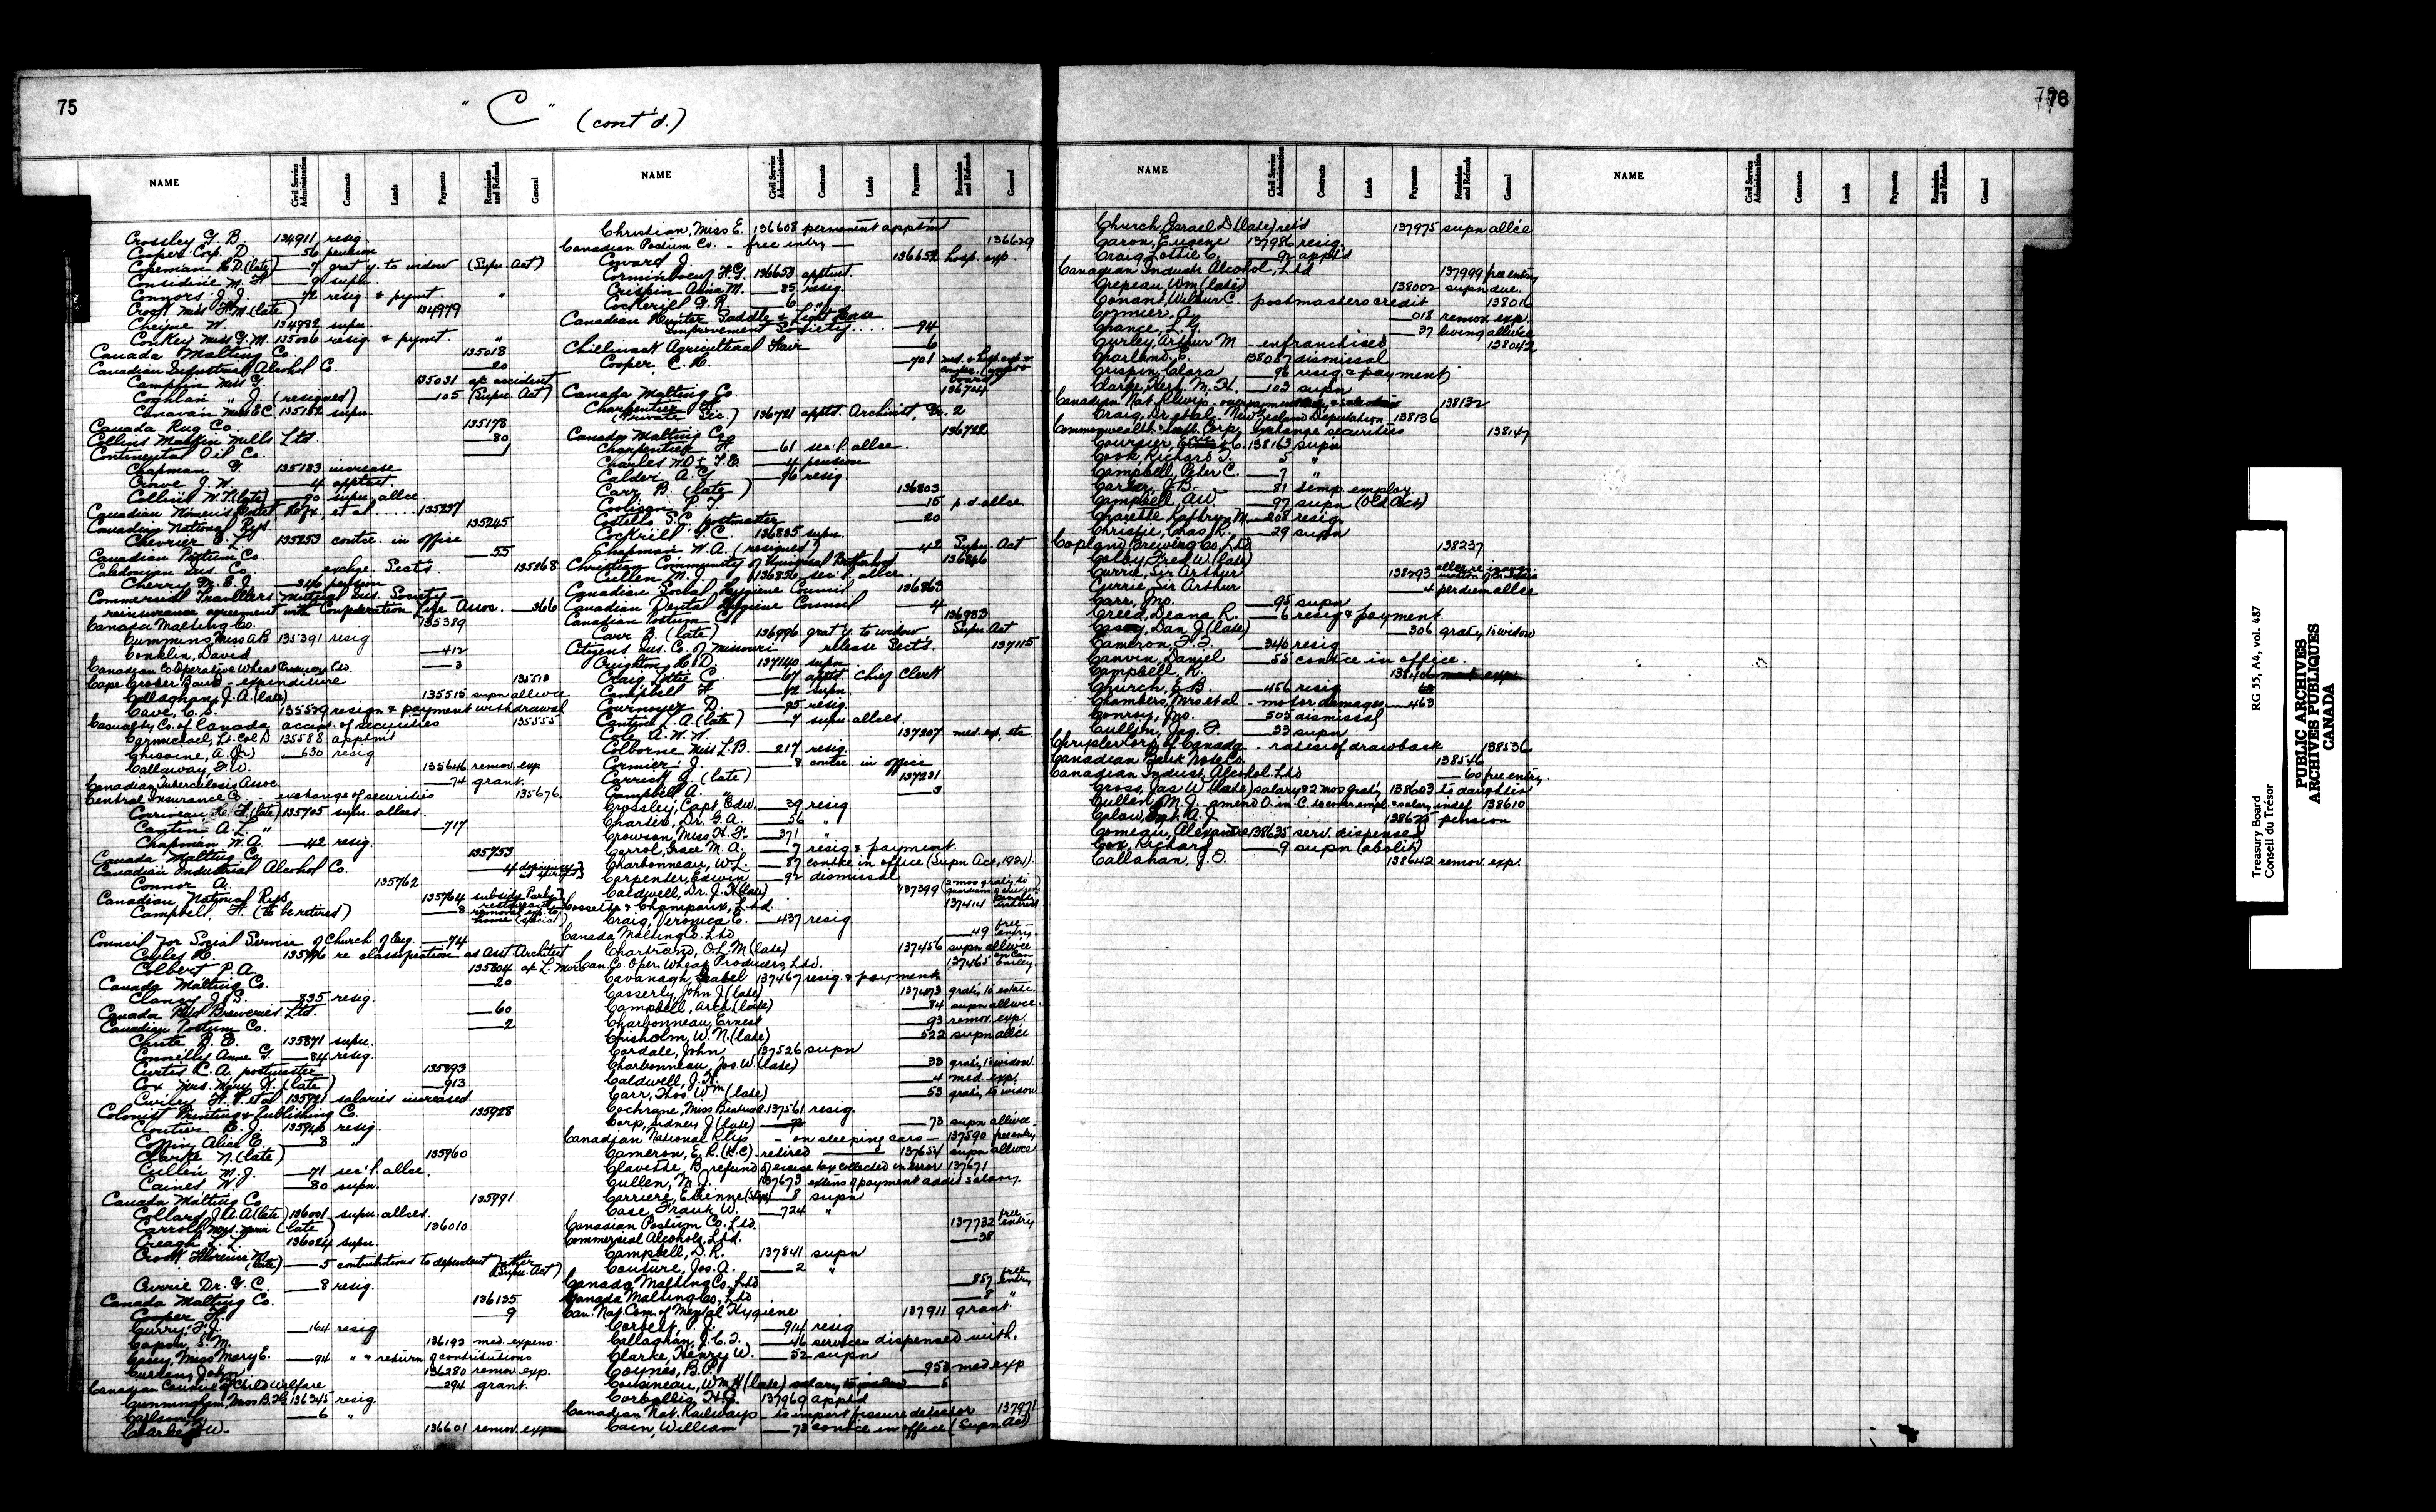 75
" C " (cont'd.)
NAME Civil Service Administration Contracts Lands Payments Remission and Refunds General
Crossley G. B. 134911 resig
Cooper Corp. D. 56 pension
Copeman H.D. (late) 7 grat'y. to widow (Supn. Act)
Considine M. F. 9 supn.
Connors J. J. 72 resig & pymt. "
Croft Miss F.M. (late) 134979
Cheyne W. 134982 supn.
Conkey Miss G. M. 135006 resig & pymt. "
Canada Malting Co. 135018
Canadian Industrial Alcohol Co. 20
Camplin Miss G. 135031 ap. accident
Coghlan " J. (resigned) 105 (Supn. Act)
Canavan Miss E.C. 135162 supn.
Canada Rug Co. 135178
Collins Mattin Mills Ltd. 80
Continental Oil Co.
Chapman G. 135183 increase
Crowe J. W. 4 apptmt.
Collins W. T. (late) 90 supn. allce.
Canadian et al ..... 135237
Canadian National Rys. 135245
Chevrier E. L. 135253 contce. in office
Canadian Postum Co. 55
Caledonian Ins. Co. exchge. Sects. 135268
Cherry M. E. J. 346 pension
Commercial Travellers Mutual Ins. Society —
reinsurance agreement with Confederation Life Assoc. 366
Canada Malting Co. 135389
Cummins, Miss A.B 135391 resig
Conklin, David 412
Canadian Coöperative Wheat Producers Ltd. 3
Cape Croker Band - expenditure 135513
Callaghan, J. A. (late) 135515 supn allwce
Cave, C. S. 135529 resign & payment withdrawal
Casualty Co. of Canada accept. of securities 135555
Carmichael, Lt. Col D 135588 apptm't
Chisoine, A. (Jr.) 630 resig
Callaway, F. W. 135646 remov. exp
Canadian Tuberculosis Assoc 74 grant.
Central Insurance Co. - exchange of securities 135676
Corriveau H. F. (late) 135705 supn. allces.
Cantin A. L. " 717
Chapman W. A. 42 resig.
Canada Malting Co. 135753
Canadian Industrial Alcohol Co. 4
Connor A. 135762
Canadian National Rys, 135764 subsidy
Campbell, H. (to be retired) 8 removal exp. to home (special)
Council for Social Service of Church of Eng. 74
Coyles H. 135796 re classification as Asst Architect
Colbert P. A. 135804
Canada Malting Co. 20
Clancy J. S. 835 resig.
Canada Bud Breweries Ltd. 60
Canadian Postum Co. 2
Chute B. E. 135871 supn.
Connelly Anne G. 84 resig.
Curtis C. A. postmaster 135893
Cox Mrs. Mary H. (late) 913
Curley H. P. et al 135921 salaries increased
Colonist Printing & Publishing Co. 135928
Cloutier E. J. 135946 resig.
Coffin Alice E. 8 "
Clarke N. (late) 135960
Cullen M. J. 71 sec'l. allce.
Caines W. 80 supn.
Canada Malting Co. 135991
Collard J. A. A. (late) 136001 supn. allces.
Carroll Mrs. Marie (late) 136010
Creagh L. L. 136024 supn.
Croft Florence M. (late) 5 contributions to dependent mother (Supn. Act)
Currie Dr. G. C. 8 resig.
Canada Malting Co. 136135
Cooper H. 9
Curry, F. J. 164 resig
Capon, S. M. 136192 med. expens.
Casey, Miss Mary E. 94 " & return of contributions
Curren, John 136280 remov. exp.
Canadian Council of Child Welfare 294 grant.
Cunningham, Miss B. 136345 resig.
Carlson, 6 "
Clarke, W. 136601 remov. exp
NAME Civil Service Administration Contracts Lands Payments Remission and Refunds General
Christian, Miss E. 136608 permanent apptm't
Canadian Postum Co. - free entry — 136629
Coward J. 136652 hosp. exp.
Corminboeuf H.G. 136653 apptmt.
Crispin Alma M. 85 resig.
Cockerill G. R. 6 "
Canadian Hunter Saddle & Light Horse
Improvement Society .... 94
Chilliwack Agricultural Fair 6
Cooper, C. H. 701
Canada Malting Co. 136704
Charpentier H.
(Private Sec.) 136721 apptd. Archivist, Gr. 2
Canada Malting Co. 136722
Charpentier F. 61 sec'l. allce.
Charles W.D. & L. E. 4 pension
Calder A. G. 96 resig.
Carr B. (late) 136803
Coolican P. J. 15 p.d. allce.
Costello S.C. postmaster 20
Cockrill G. C. 136835 supn.
Chapman W. A. (resigned) 42 Supn. Act
Christian Community of Universal Brotherhood 136846
Cullen M. J. 136856 sec'l allce.
Canadian Social Hygiene Council 136863
Canadian Dental Hygiene Council 4
Canadian Postum Co. 136933
Carr B. (late) 136996 grat'y. to widow Supn. Act
Citizens Ins. Co. of Missouri release Sects. 137115
Creighton, H. D. 137140 supn.
Craig Lottie C. 67 apptd. Chief Clerk
Campbell H. 92 supn.
Cournoyer D. 95 resig.
Cantin L. A. (late) 7 supn. allces.
Cole A. W. N. 137207 med. exp, etc
Colborne Miss L.B. 217 resig.
Cormier J. 8 contce in office
Carrick G. (late) 137231
Campbell A. " 3
Crossley, Capt. Edw. 39 resig
Charter, Dr. G. A. 56 "
Crowson, Miss H. F. 371 "
Carrol, Grace M. A. 7 resig & payment
Charbonneau, W. L. 87 contce in office (Supn Act, 1924)
Carpenter, Edwin 92 dismissal
Caldwell, Dr. J. H. (late) 137399
Cossette & Champoux, Ltd. 137414
Craig, Veronica C. 437 resig
Canada Malting Co. Ltd 49 free entry
Chartrand, O. L. M. (late) 137456 supn allwce
Can. Co. Oper. Wheat Producers, Ltd. 137465 on Can barley.
Cavanagh, Isabel 137467 resig. & payment
Casserly, John J. (late) 137473 grat'y to estate
Campbell, Arch (late) 84 supn allwce.
Charbonneau, Ernest 93 remov. exp.
Chisholm, W. N. (late) 522 supn allce
Cordale, John 137526 supn
Charbonneau, Jos. W. (late) 33 grat'y to widow.
Caldwell, J. H. 4 med. exp.
Carr, Thos. Wm (late) 53 grat'y to widow
Cochrane, Miss Beatrice 137561 resig.
Corp, Sidney J. (late) 73 supn allwce
Canadian National Rlys - on sleeping cars — 137590 free entry
Cameron, E. R. (K.C) - retired 137654 supn allwce
Clavette, B - refund of excise tax collected in error 137671
Cullen, M. J. 137673 extens of payment addit salary.
Carriere, Etienne 8 supn
Case, Frank W. 724 "
Canadian Postum Co. Ltd. 137732 free entry
Commercial Alcohols, Ltd. 38
Campbell, D. R. 137841 supn
Couture, Jos. A. 2 "
Canada Malting Co., Ltd 857 free entry
Canada Malting Co., Ltd 8 "
Can. Nat. Com. of Mental Hygiene 137911 grant.
Corbett, P. J. 914 resig
Callaghan, J. C. F. 46 services dispensed with.
Clarke, Henry W. 52 supn
Coynes, B. P. 953 med exp
Cousineau, Wm H (late) salary to widow 5
Corballis, H. G. 137960 appt'd
Canadian Nat. Railways - to import fissure detector 137971
Cain, William 73 contce in office (Supn Act)
76
NAME Civil Service Administration Contracts Lands Payments Remission and Refunds General
Church, Israel D (late) ret'd 137975 supn allce
Caron, Eugene 137986 resig.
Craig, Lottie C. 92 appt'd
Canadian Industr. Alcohol, Ltd 137999 free entry
Crepeau, Wm (late) 138002 supn due.
Conant, Wilbur C. postmasters credit 138016
Cormier, A. 018 remov. exp.
Chance, L. G. 37 living allwce
Curley, Arthur M - enfranchised 138042
Charland, E. 138087 dismissal
Crispin, Clara 96 resig & payment
Clarke, Herb. M. H. 103 supn
Canadian Nat. Rlwys - 138132
Craig, Dr et al - New Zealand Deputation 138136
Commonwealth Corp. Exchange securities 138147
Coursier, E. C. 138163 supn
Cook, Richard T. 5 "
Campbell, Peter C. 7 "
Carter, C.B. 81 temp. employ
Campbell, A W 97 supn (Old Act)
Charette, Kathryn M. 208 resig.
Christie, Chas. R. 29 supn
Copland Brewing Co. Ltd 138237
Colby, Fred W. (late)
Currie, Sir Arthur 138293
Currie, Sir Arthur 4 per diem allce
Carr, Jno. 95 supn
Creed, Deana R. 6 resig & payment
Casey, Dan J. (late) 306 grat'y to widow
Cameron, F. F. 346 resig
Canvin, Daniel 55 contce in office.
Campbell, R. 138406
Church, E. B. 456 resig
Chambers, Mrs et al - motor damages 463
Conroy, Jno. 505 dismissal
Cullen, Jas. F. 33 supn
Chrysler Corp. of Canada - rates of drawback 138536
Canadian Bank Note Co. 138546
Canadian Indust. Alcohol. Ltd 60 free entry.
Cross, Jas W (late) salary & 2 mos grat'y 138603 to daughter
Cullen, M. J. - amend O. in C. to cover empl. & salary indef 138610
Calow, Sgt. A. J. 138625 pension
Comeau, Alexandre 138635 serv. dispensed
Cox, Richard 9 supn (abolit)
Callahan, J. F. 138642 remov. exp.
NAME Civil Service Administration Contracts Lands Payments Remission and Refunds General
Treasury Board RG 55, A4, vol. 487
Conseil du Trésor
PUBLIC ARCHIVES
ARCHIVES PUBLIQUES
CANADA